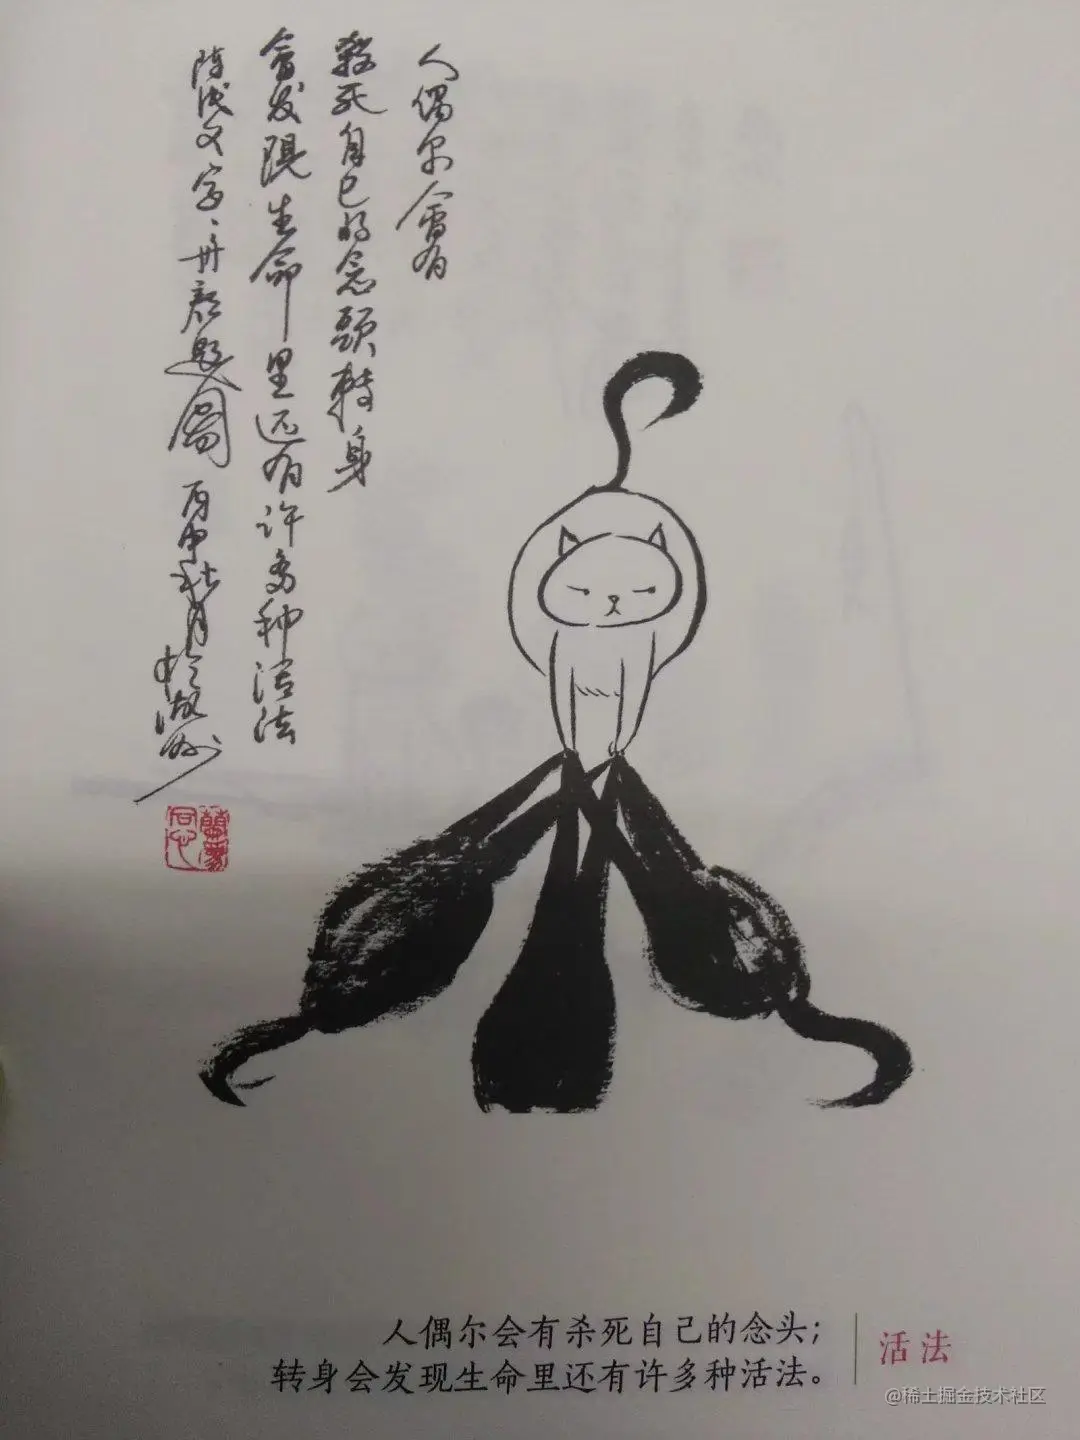 人偶尔會有
殺死自己的念頭轉身
會发現生命里还有许多种活法
陈浅文字、丹 题图 丙申秋月
人偶尔会有杀死自己的念头;
转身会发现生命里还有许多种活法。
活法
@稀土掘金技术社区